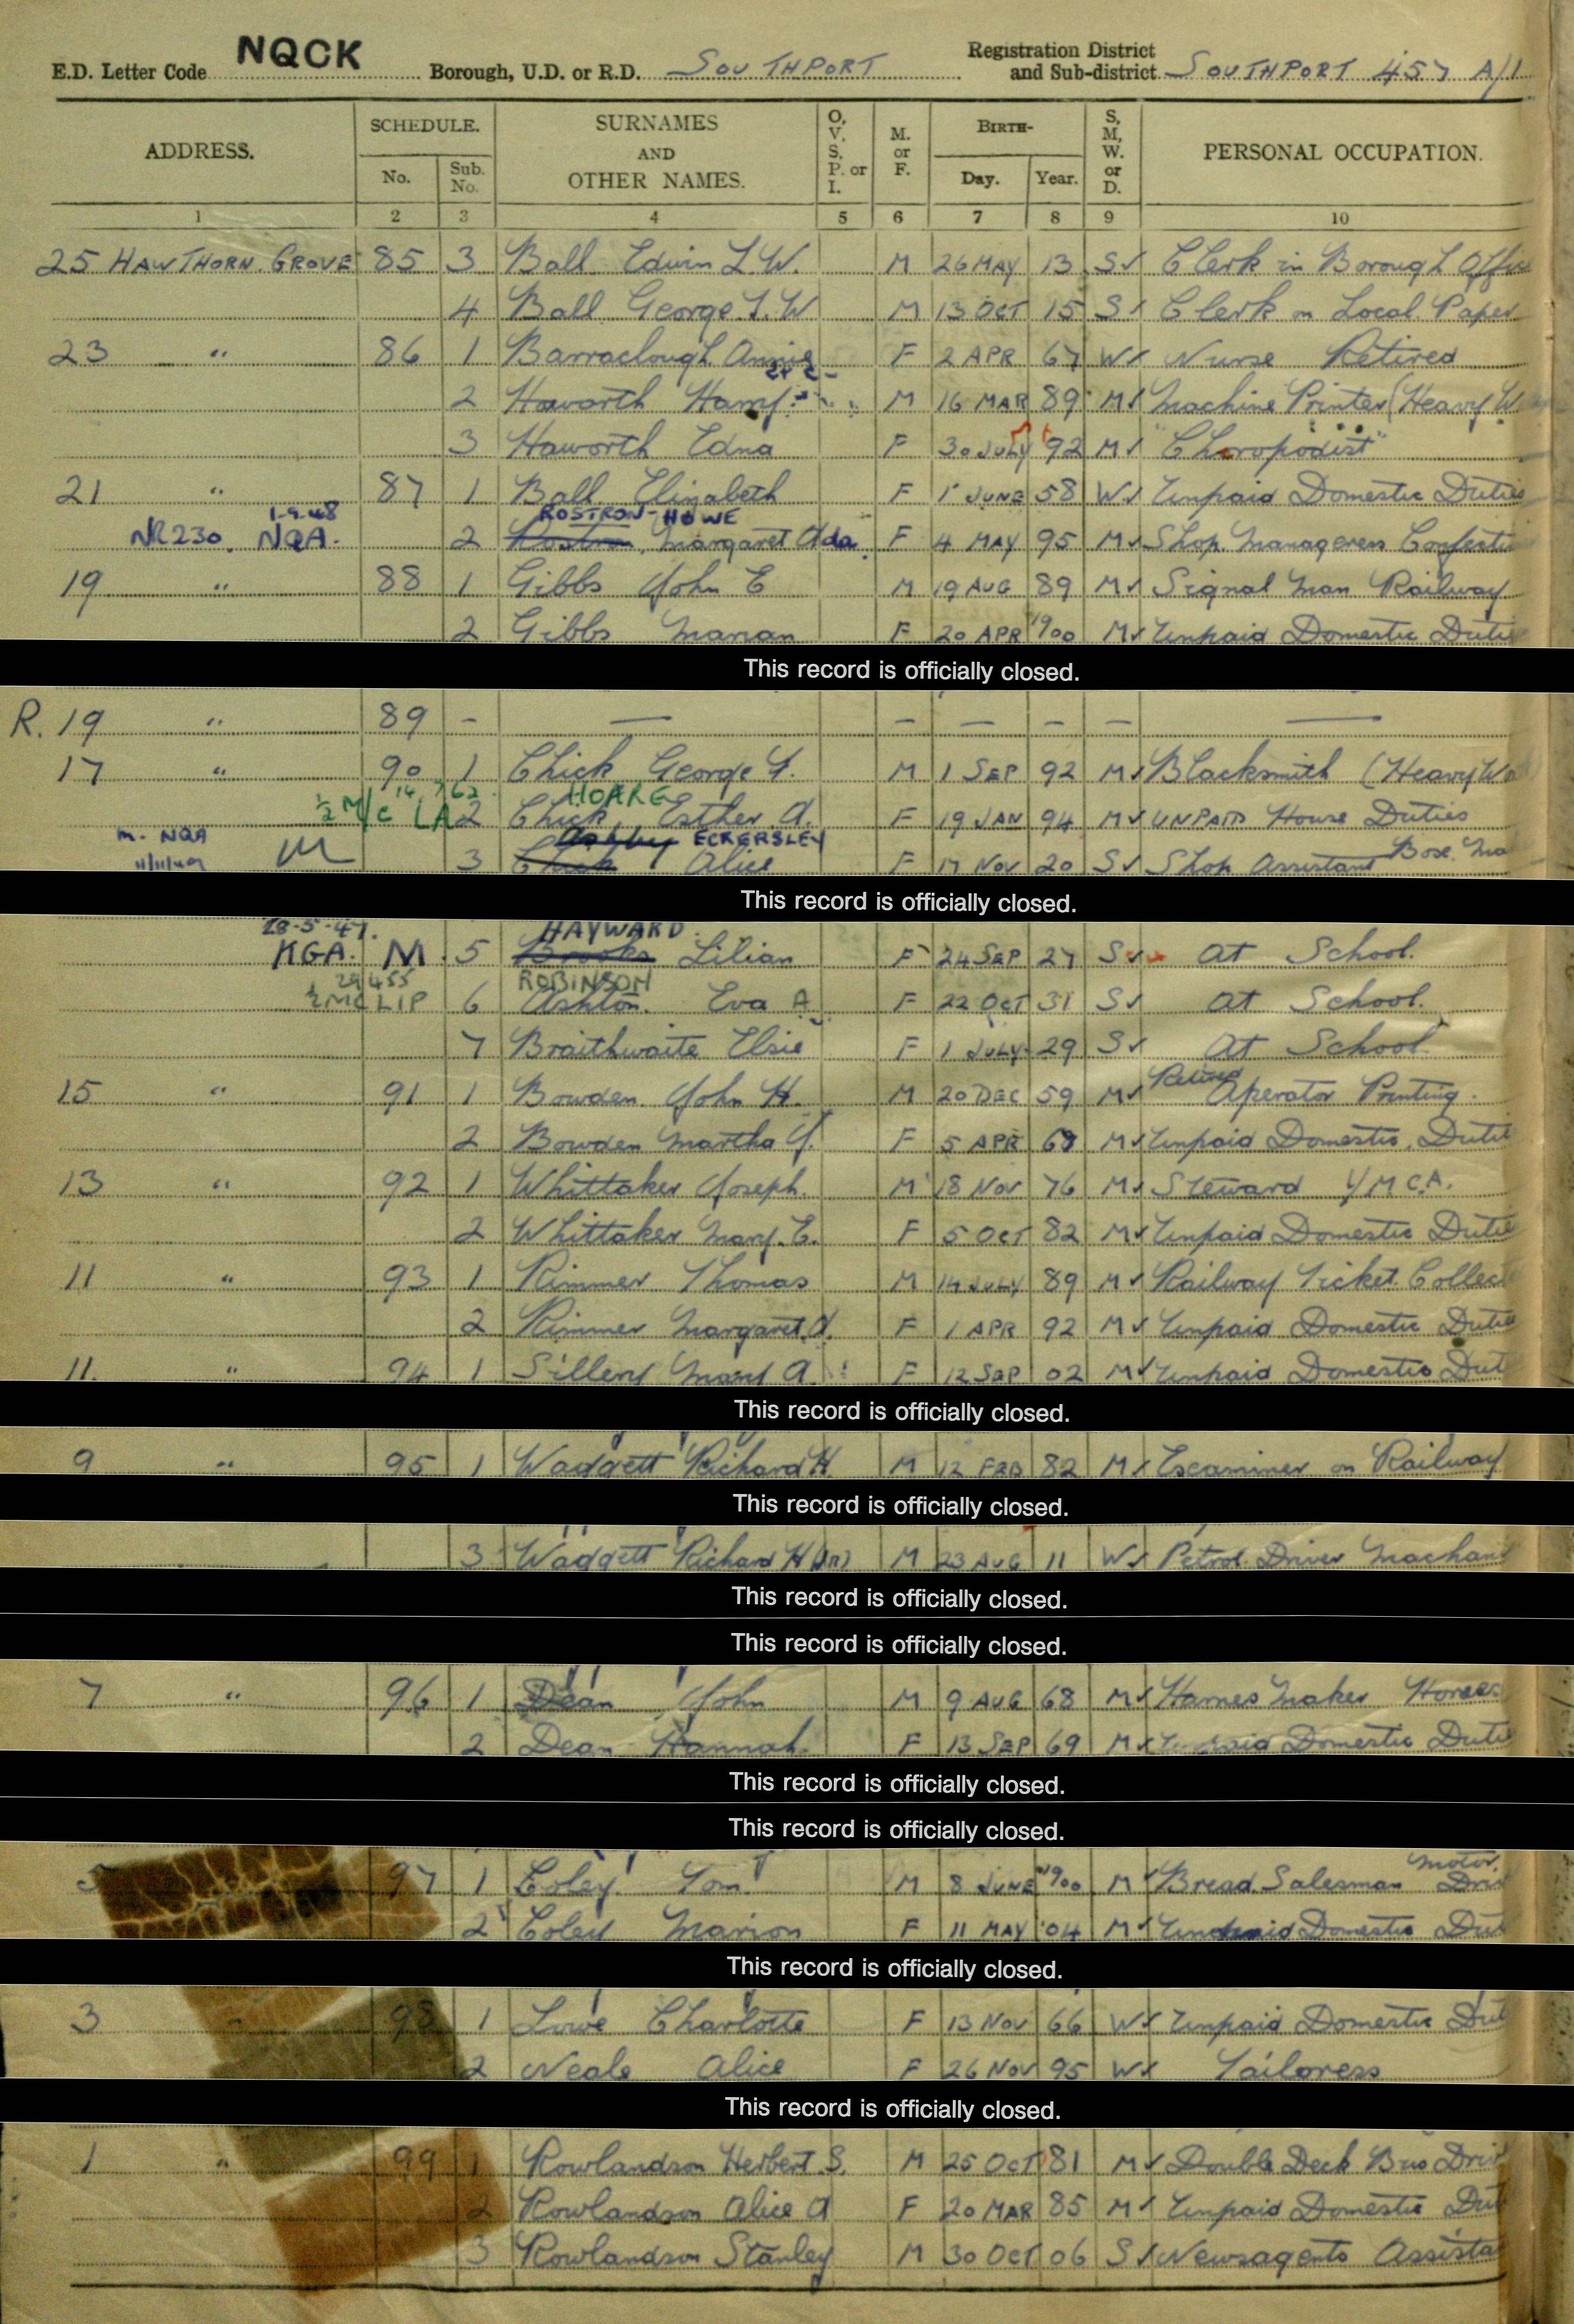 E.D. Letter Code NQCK Borough, U.D. or R.D. SOUTHPORT Registration District and Sub-district SOUTHPORT 457 A/1
ADDRESS. SCHEDULE. No. Sub. No. SURNAMES AND OTHER NAMES. O, V, S, P. or I. M. or F. BIRTH- Day. Year. S, M, W. or D. PERSONAL OCCUPATION.
1 2 3 4 5 6 7 8 9 10
25 HAWTHORN. GROVE 85 3 Ball Edwin L.W. M 26 MAY 13 S✓ Clerk in Borough Office
4 Ball George W M 13 OCT 15 S✓ Clerk on Local Paper
23 " 86 1 Barraclough Annie F 2 APR 67 W✓ Nurse Retired
2 Haworth Harry M 16 MAR 89 M✓ Machine Printer (Heavy W
3 Haworth Edna F 30 JULY 92 M✓ "Chiropodist"
21 " 87 1 Ball Elizabeth F 1 JUNE 58 W✓ Unpaid Domestic Duties
1-9-48 ROSTRON-HOWE
NR230. NQA. 2 Rostron Margaret Ada F 4 MAY 95 M✓ Shop Manageress Confecti
19 " 88 1 Gibbs John E M 19 AUG 89 M✓ Signal Man Railway
2 Gibbs Marian F 20 APR 1900 M✓ Unpaid Domestic Duti
This record is officially closed.
R. 19 " 89 - — — — — — —
17 " 90 1 Chick George M 1 SEP 92 M✓ Blacksmith (Heavy Wo
HOARE
LA 2 Chick Esther A. F 19 JAN 94 M✓ UNPAID House Duties
m. NQA Ashby ECKERSLEY
M 3 Chick Alice F 17 Nov 20 S✓ Shop Assistant
This record is officially closed.
28-5-47. HAYWARD
KGA. M 5 Brooks Lilian F 24 SEP 27 S✓ At School.
29 4 55 ROBINSON
LIP 6 Ashton. Eva A F 22 OCT 31 S✓ At School.
7 Braithwaite Elsie F 1 JULY 29 S✓ At School
15 " 91 1 Bowden. John H. M 20 DEC 59 M✓ Retired Operator Printing.
2 Bowden Martha F 5 APR 68 M✓ Unpaid Domestic Duti
13 " 92 1 Whittaker Joseph. M 18 Nov 76 M✓ Steward Y.M.C.A.
2 Whittaker Mary. E. F 5 OCT 82 M✓ Unpaid Domestic Dutie
11 " 93 1 Rimmer Thomas M 14 JULY 89 M✓ Railway Ticket Collec
2 Rimmer Margaret A. F 1 APR 92 M✓ Unpaid Domestic Dutie
11. " 94 1 Sillery Mary A. F 12 SEP 02 M✓ Unpaid Domestic Dut
This record is officially closed.
9 " 95 1 Waggett Richard H. M 12 FEB 82 M✓ Examiner on Railway
This record is officially closed.
3 Waggett Richard H (Jn) M 23 AUG 11 W✓ Petrol Driver Machani
This record is officially closed.
This record is officially closed.
7 " 96 1 Dean John M 9 AUG 68 M✓ Harnes Maker Horses
2 Dean Hannah. F 13 SEP 69 M✓ Unpaid Domestic Dutie
This record is officially closed.
This record is officially closed.
5 97 1 Coley Tom M 8 JUNE 1900 M✓ Bread Salesman Motor Driv
2 Coley Marion F 11 MAY 04 M✓ Unpaid Domestic Dut
This record is officially closed.
3 " 98 1 Lowe Charlotte F 13 Nov 66 W✓ Unpaid Domestic Dut
2 Neale Alice F 26 Nov 95 W✓ Tailoress
This record is officially closed.
1 " 99 1 Rowlandson Herbert S. M 25 OCT 81 M✓ Double Deck Bus Driv
2 Rowlandson Alice A F 20 MAR 85 M✓ Unpaid Domestic Dut
3 Rowlandson Stanley M 30 OCT 06 S✓ Newsagents Assista